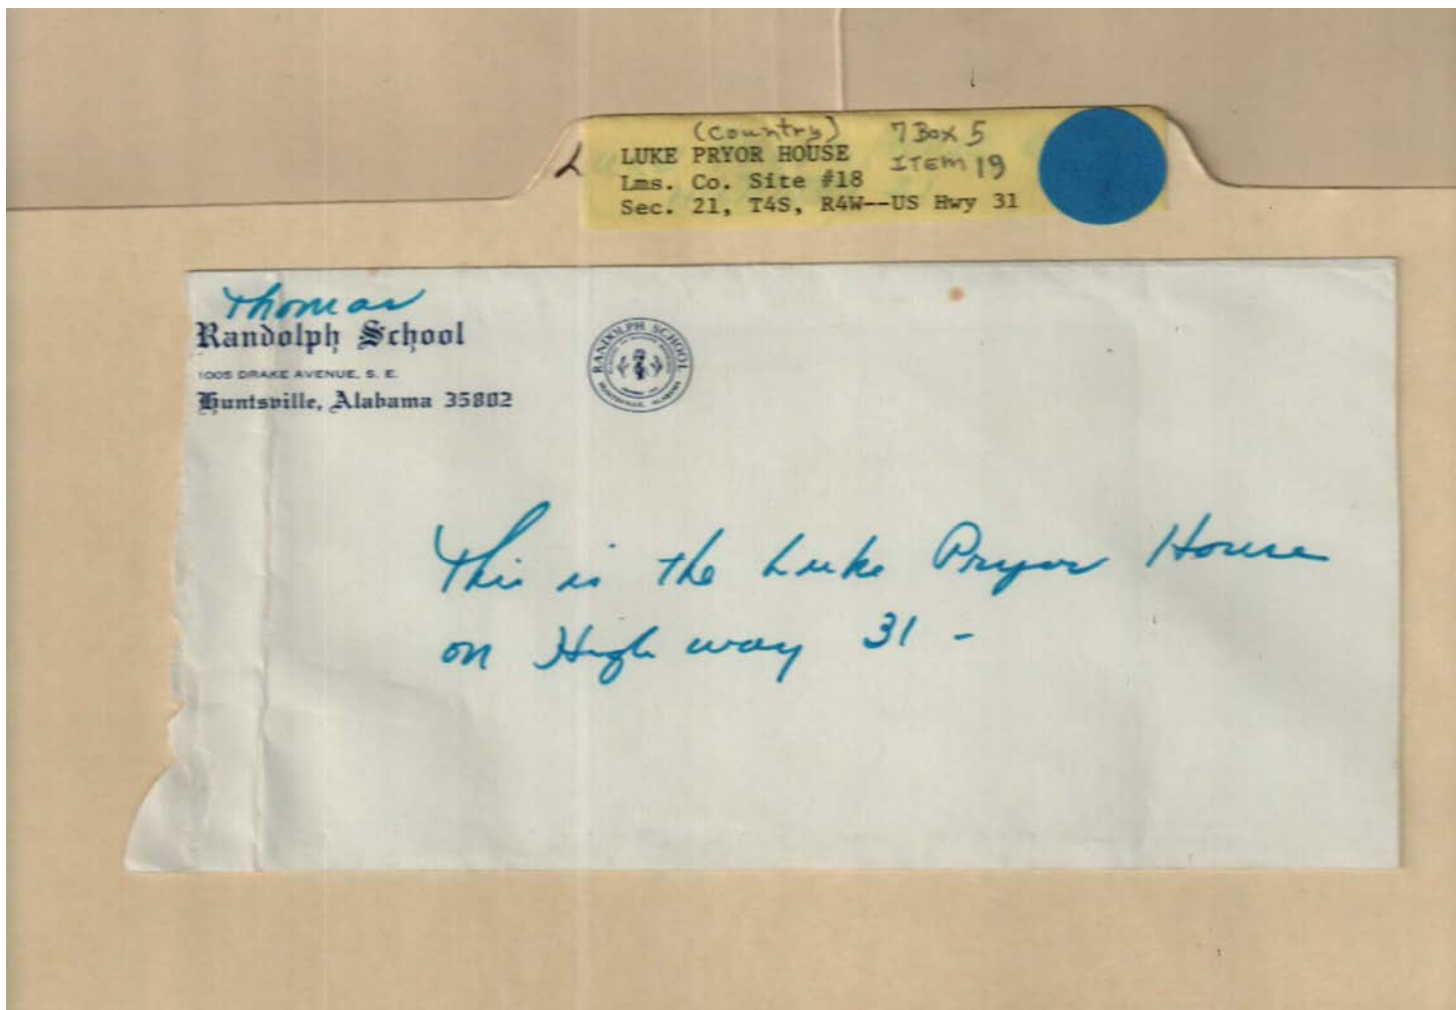 (Country) 7 Box 5
LUKE PRYOR HOUSE ITEM 19
Lms. Co. Site #18
Sec. 21, T4S, R4W--US Hwy 31
Thomas
Randolph School
1005 DRAKE AVENUE, S. E.
Huntsville, Alabama 35802
RANDOLPH SCHOOL
HUNTSVILLE, ALABAMA
This is the Luke Pryor House
on Highway 31 -